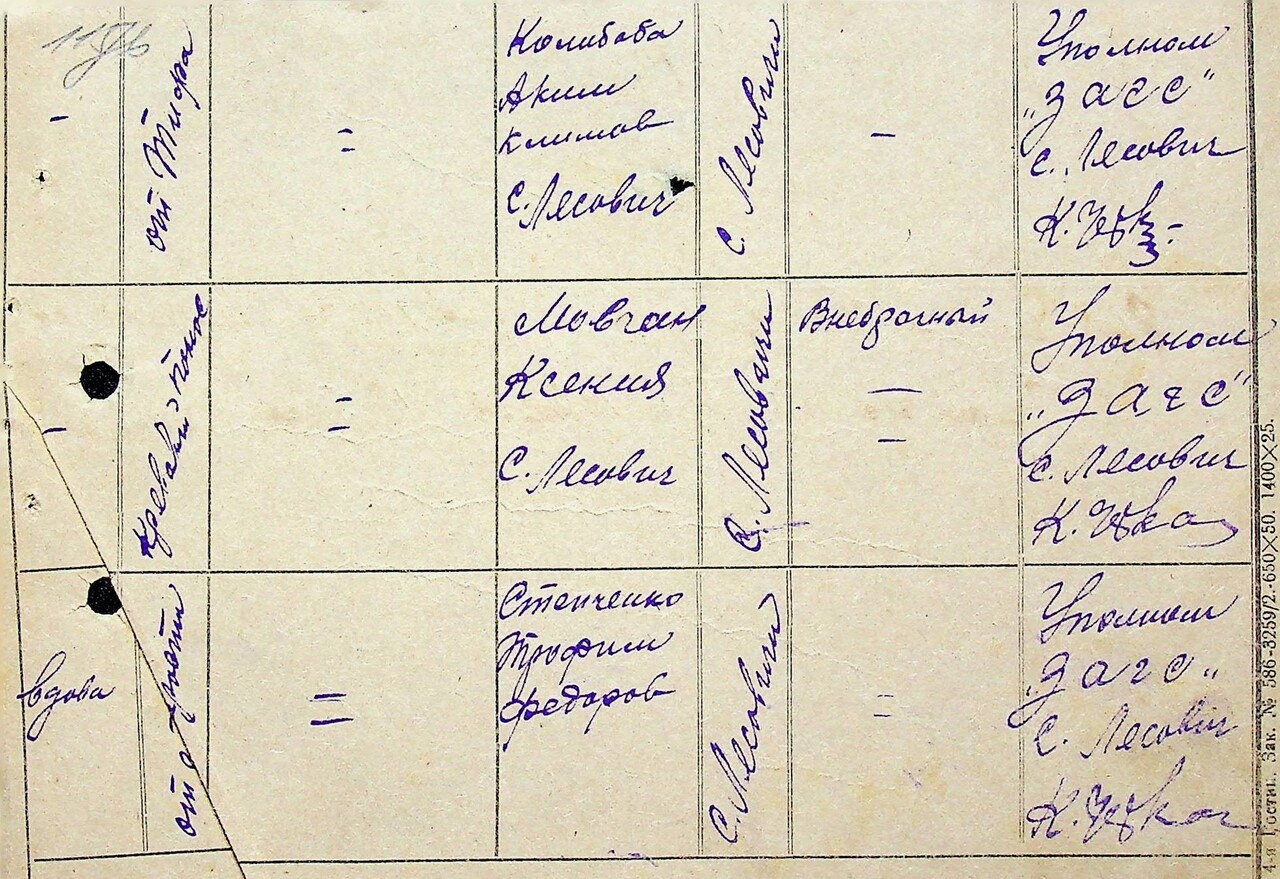 от Тифа
=
Колибаба
Аким
Климов
С. Лесович
С. Лесовичи
Уполном
"Загс"
с. Лесович
К.
Кровавый понос
=
Мовчан
Ксения
С. Лесович
С. Лесовичи
Внебрачный
Уполном
"Загс"
с. Лесович
К.
вдова
от
=
Степченко
Трофим
Федоров
С. Лесовичи
=
Уполном
"Загс"
с. Лесович
К.
4-я Гостип. Зак. № 586-3259/2.-650×50. 1400×25.